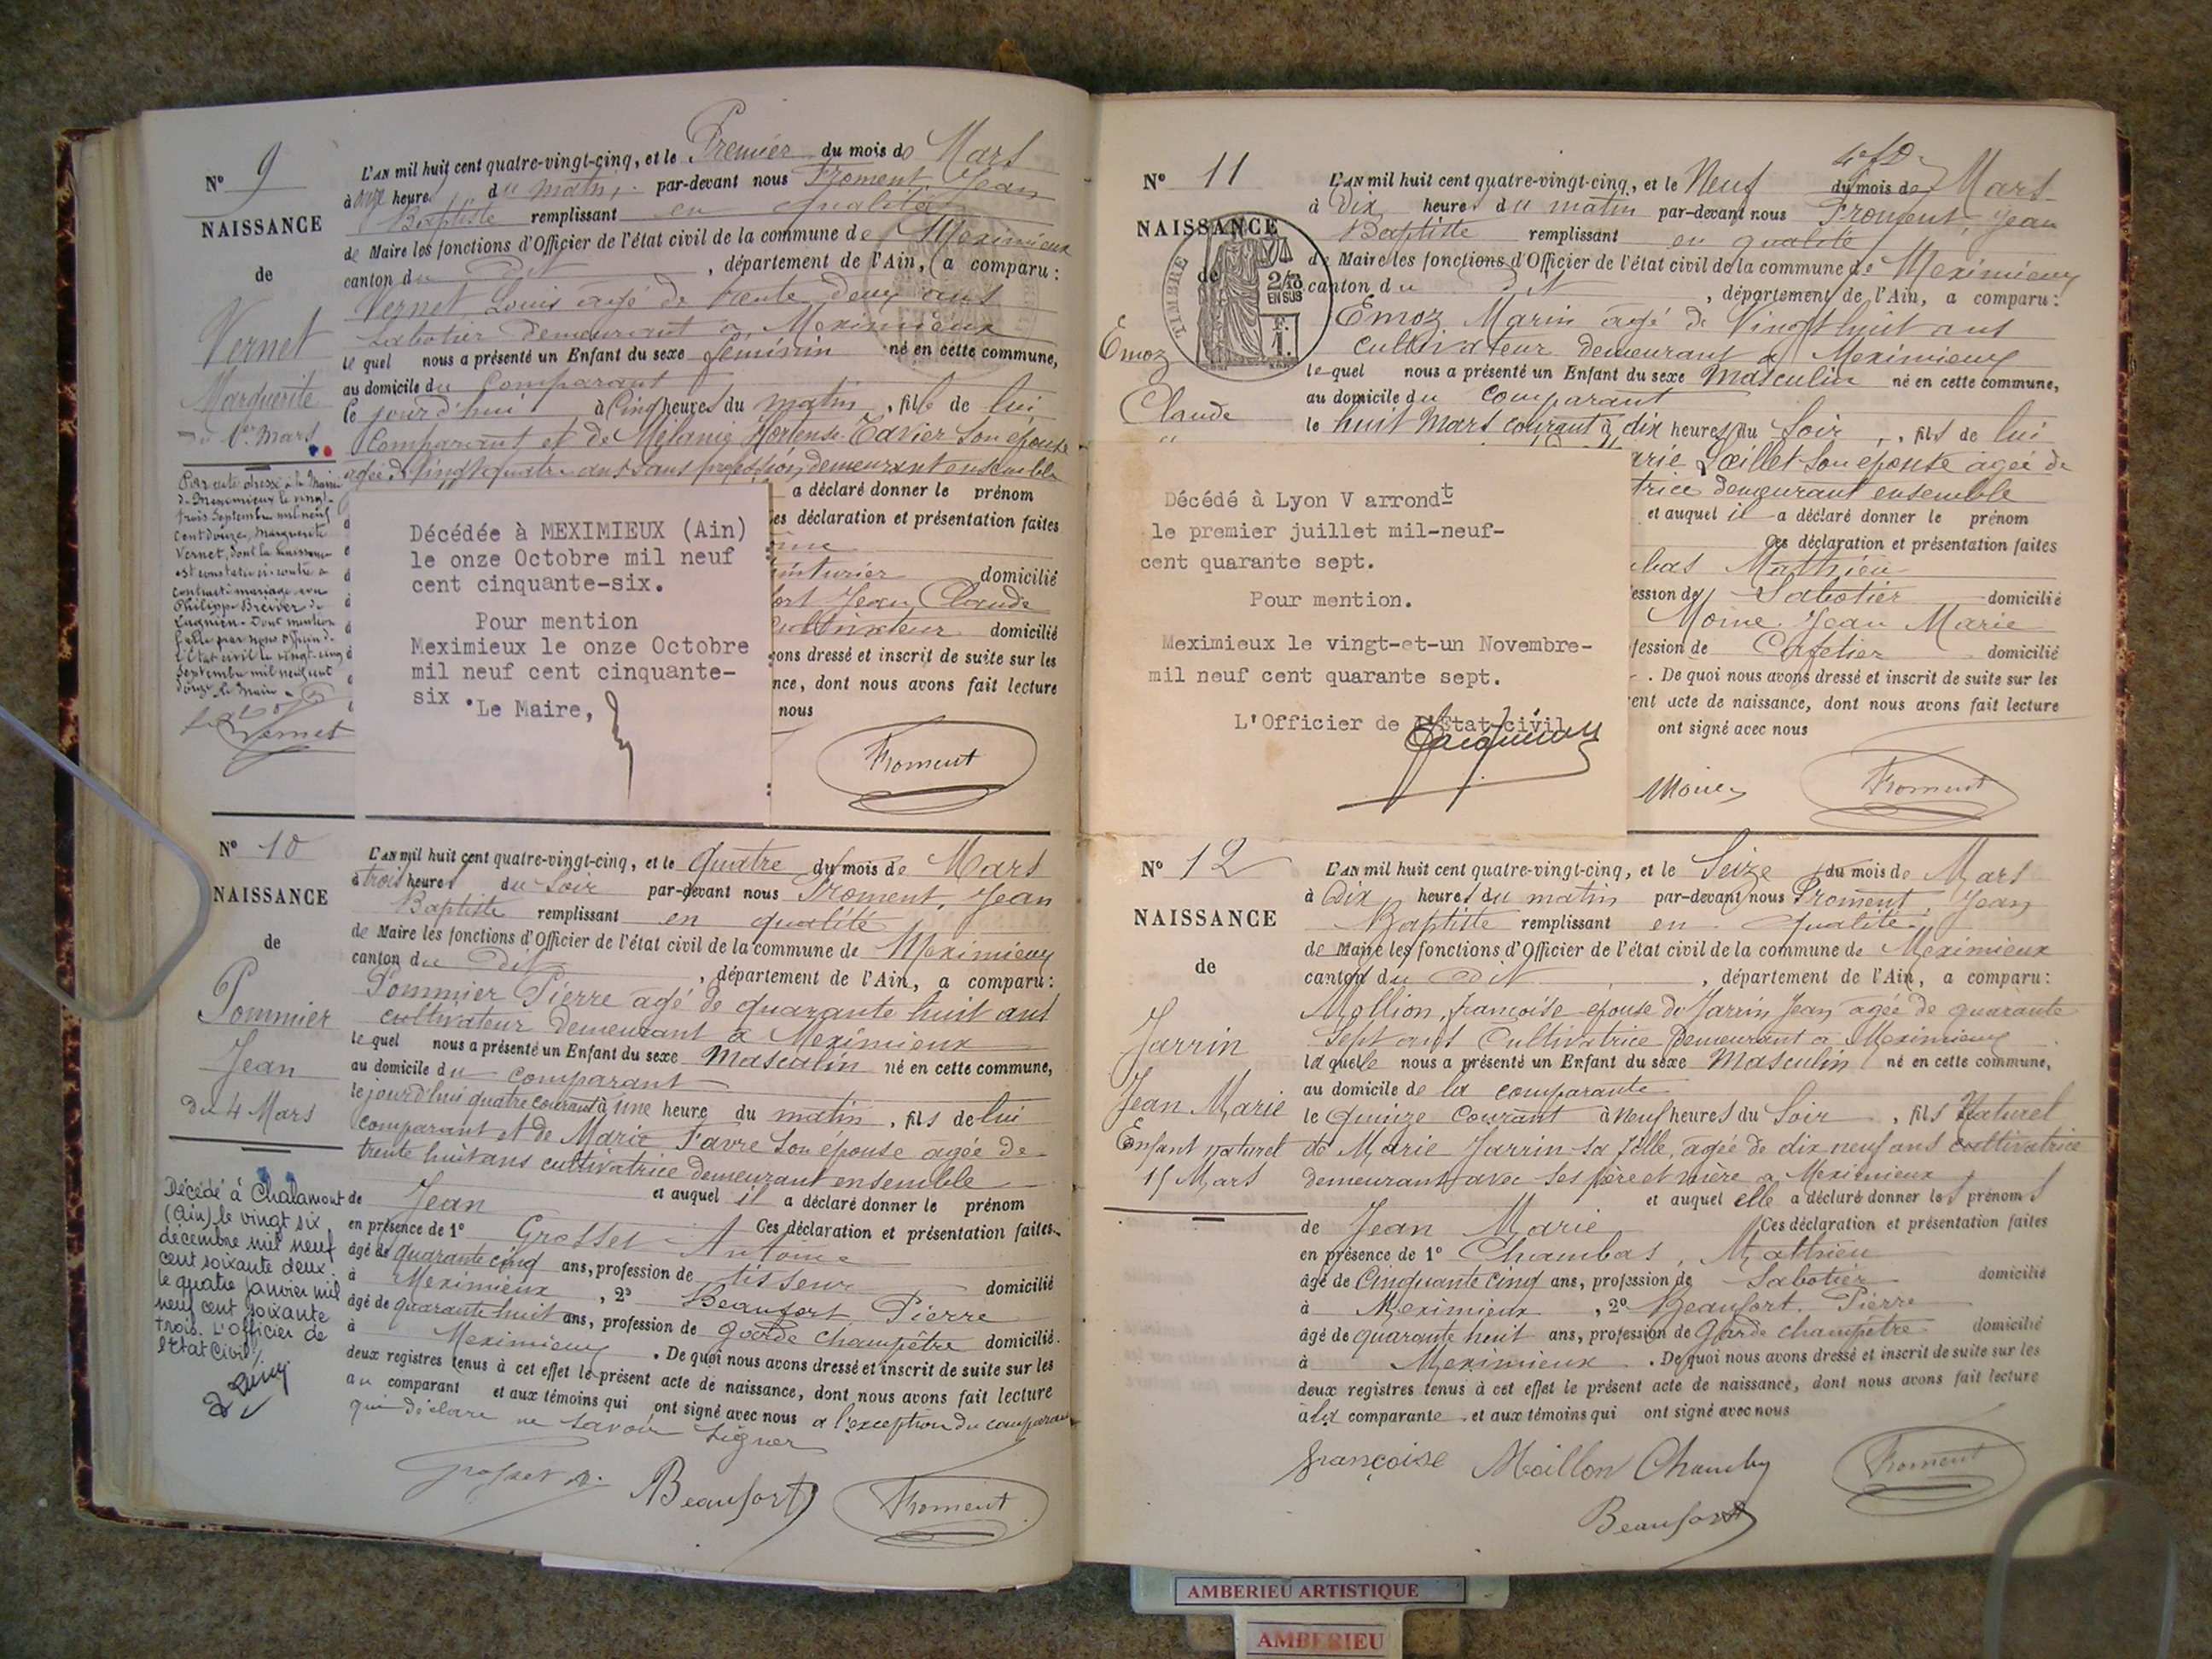 N° 9
NAISSANCE
de
Vernet
Marguerite
du 1er Mars
L'AN mil huit cent quatre-vingt-cinq, et le Premier du mois de Mars
à onze heures du matin, par-devant nous Froment Jean
Baptiste remplissant en qualité
de Maire les fonctions d'Officier de l'état civil de la commune de Meximieux
canton du dit, département de l'Ain, a comparu :
Vernet Louis agé de trente deux ans
Sabotier demeurant à Meximieux
lequel nous a présenté un Enfant du sexe féminin né en cette commune,
au domicile du Comparant
le jourd'hui à Cinq heures du matin, fille de lui
Comparant et de Mélanie Hortense Tavier son épouse
agée de vingt quatre ans sans profession, demeurant ensemble
a déclaré donner le prénom
es déclaration et présentation faites
inturier domicilié
ort Jean Claude
cultivateur domicilié
ons dressé et inscrit de suite sur les
nce, dont nous avons fait lecture
nous
Froment
Par acte dressé à la Mairie
de Meximieux le vingt-
trois Septembre mil neuf
cent douze, Marguerite
Vernet, dont la naissance
est constatée ci-contre a
contracté mariage avec
Philippe Breiver de
Lagnieu. Dont mention
faite par nous officier de
l'Etat civil le vingt-cinq
Septembre mil neuf cent
douze. Le Maire
Vernet
Décédée à MEXIMIEUX (Ain)
le onze Octobre mil neuf
cent cinquante-six.
Pour mention
Meximieux le onze Octobre
mil neuf cent cinquante-
six. Le Maire,
N° 10
NAISSANCE
de
Pommier
Jean
du 4 Mars
L'AN mil huit cent quatre-vingt-cinq, et le Quatre du mois de Mars
à trois heures du Soir par-devant nous Froment, Jean
Baptiste remplissant en qualité
de Maire les fonctions d'Officier de l'état civil de la commune de Meximieux
canton du Dit, département de l'Ain, a comparu :
Pommier Pierre agé de quarante huit ans
cultivateur demeurant à Meximieux
lequel nous a présenté un Enfant du sexe Masculin né en cette commune,
au domicile du comparant
le jourd'hui quatre courant à une heure du matin, fils de lui
comparant et de Marie Favre son épouse agée de
trente huit ans cultivatrice demeurant ensemble
et auquel il a déclaré donner le prénom
de Jean Ces déclaration et présentation faites
en présence de 1° Grosset Antoine
âgé de quarante cinq ans, profession de tisseur domicilié
à Meximieux, 2° Beaufort Pierre
âgé de quarante huit ans, profession de Garde champêtre domicilié
à Meximieux. De quoi nous avons dressé et inscrit de suite sur les
deux registres tenus à cet effet le présent acte de naissance, dont nous avons fait lecture
au comparant et aux témoins qui ont signé avec nous a l'exception du comparant
qui déclare ne savoir signer
Grosset A. Beaufort Froment
Décédé à Chalamont
(Ain) le vingt six
décembre mil neuf
cent soixante deux.
le quatre janvier mil
neuf cent soixante
trois. L'Officier de
l'Etat Civil,
N° 11
NAISSANCE
de
Emoz
Claude
TIMBRE
2/10
EN SUS
L'AN mil huit cent quatre-vingt-cinq, et le Neuf du mois de Mars
à Dix heures du matin par-devant nous Froment, Jean
Baptiste remplissant en qualité
de Maire les fonctions d'Officier de l'état civil de la commune de Meximieux
canton du dit, département de l'Ain, a comparu :
Emoz Marin agé de Vingt huit ans
cultivateur demeurant à Meximieux
lequel nous a présenté un Enfant du sexe Masculin né en cette commune,
au domicile du comparant
le huit Mars courant à dix heures du Soir, fils de lui
arie Lœillet son épouse agée de
trice demeurant ensemble
et auquel il a déclaré donner le prénom
Ces déclaration et présentation faites
bas Mathieu
ession de Sabotier domicilié
Moine Jean Marie
fession de Cafetier domicilié
. De quoi nous avons dressé et inscrit de suite sur les
ent acte de naissance, dont nous avons fait lecture
ont signé avec nous
Moine Froment
Décédé à Lyon V arrondt
le premier juillet mil-neuf-
cent quarante sept.
Pour mention.
Meximieux le vingt-et-un Novembre-
mil neuf cent quarante sept.
L'Officier de l'Etat-civil
N° 12
NAISSANCE
de
Jarrin
Jean Marie
Enfant naturel
15 Mars
L'AN mil huit cent quatre-vingt-cinq, et le Seize du mois de Mars
à Dix heures du matin par-devant nous Froment, Jean
Baptiste remplissant en qualité
de Maire les fonctions d'Officier de l'état civil de la commune de Meximieux
canton du dit, département de l'Ain, a comparu :
Mollion, françoise épouse de Jarrin Jean agée de quarante
Sept ans Cultivatrice Demeurant à Meximieux
laquelle nous a présenté un Enfant du sexe Masculin né en cette commune,
au domicile de la comparante
le Quinze Courant à Neuf heures du Soir, fils Naturel
de Marie Jarrin sa fille, agée de dix neuf ans cultivatrice
demeurant avec ses père et mère à Meximieux
et auquel elle a déclaré donner les prénoms
de Jean Marie Ces déclaration et présentation faites
en présence de 1° Chambas, Mathieu
âgé de Cinquante cinq ans, profession de Sabotier domicilié
à Meximieux, 2° Beaufort. Pierre
âgé de quarante huit ans, profession de Garde champêtre domicilié
à Meximieux. De quoi nous avons dressé et inscrit de suite sur les
deux registres tenus à cet effet le présent acte de naissance, dont nous avons fait lecture
à la comparante et aux témoins qui ont signé avec nous
françoise Moillon Chamby Froment
Beaufort
AMBERIEU ARTISTIQUE
AMBERIEU